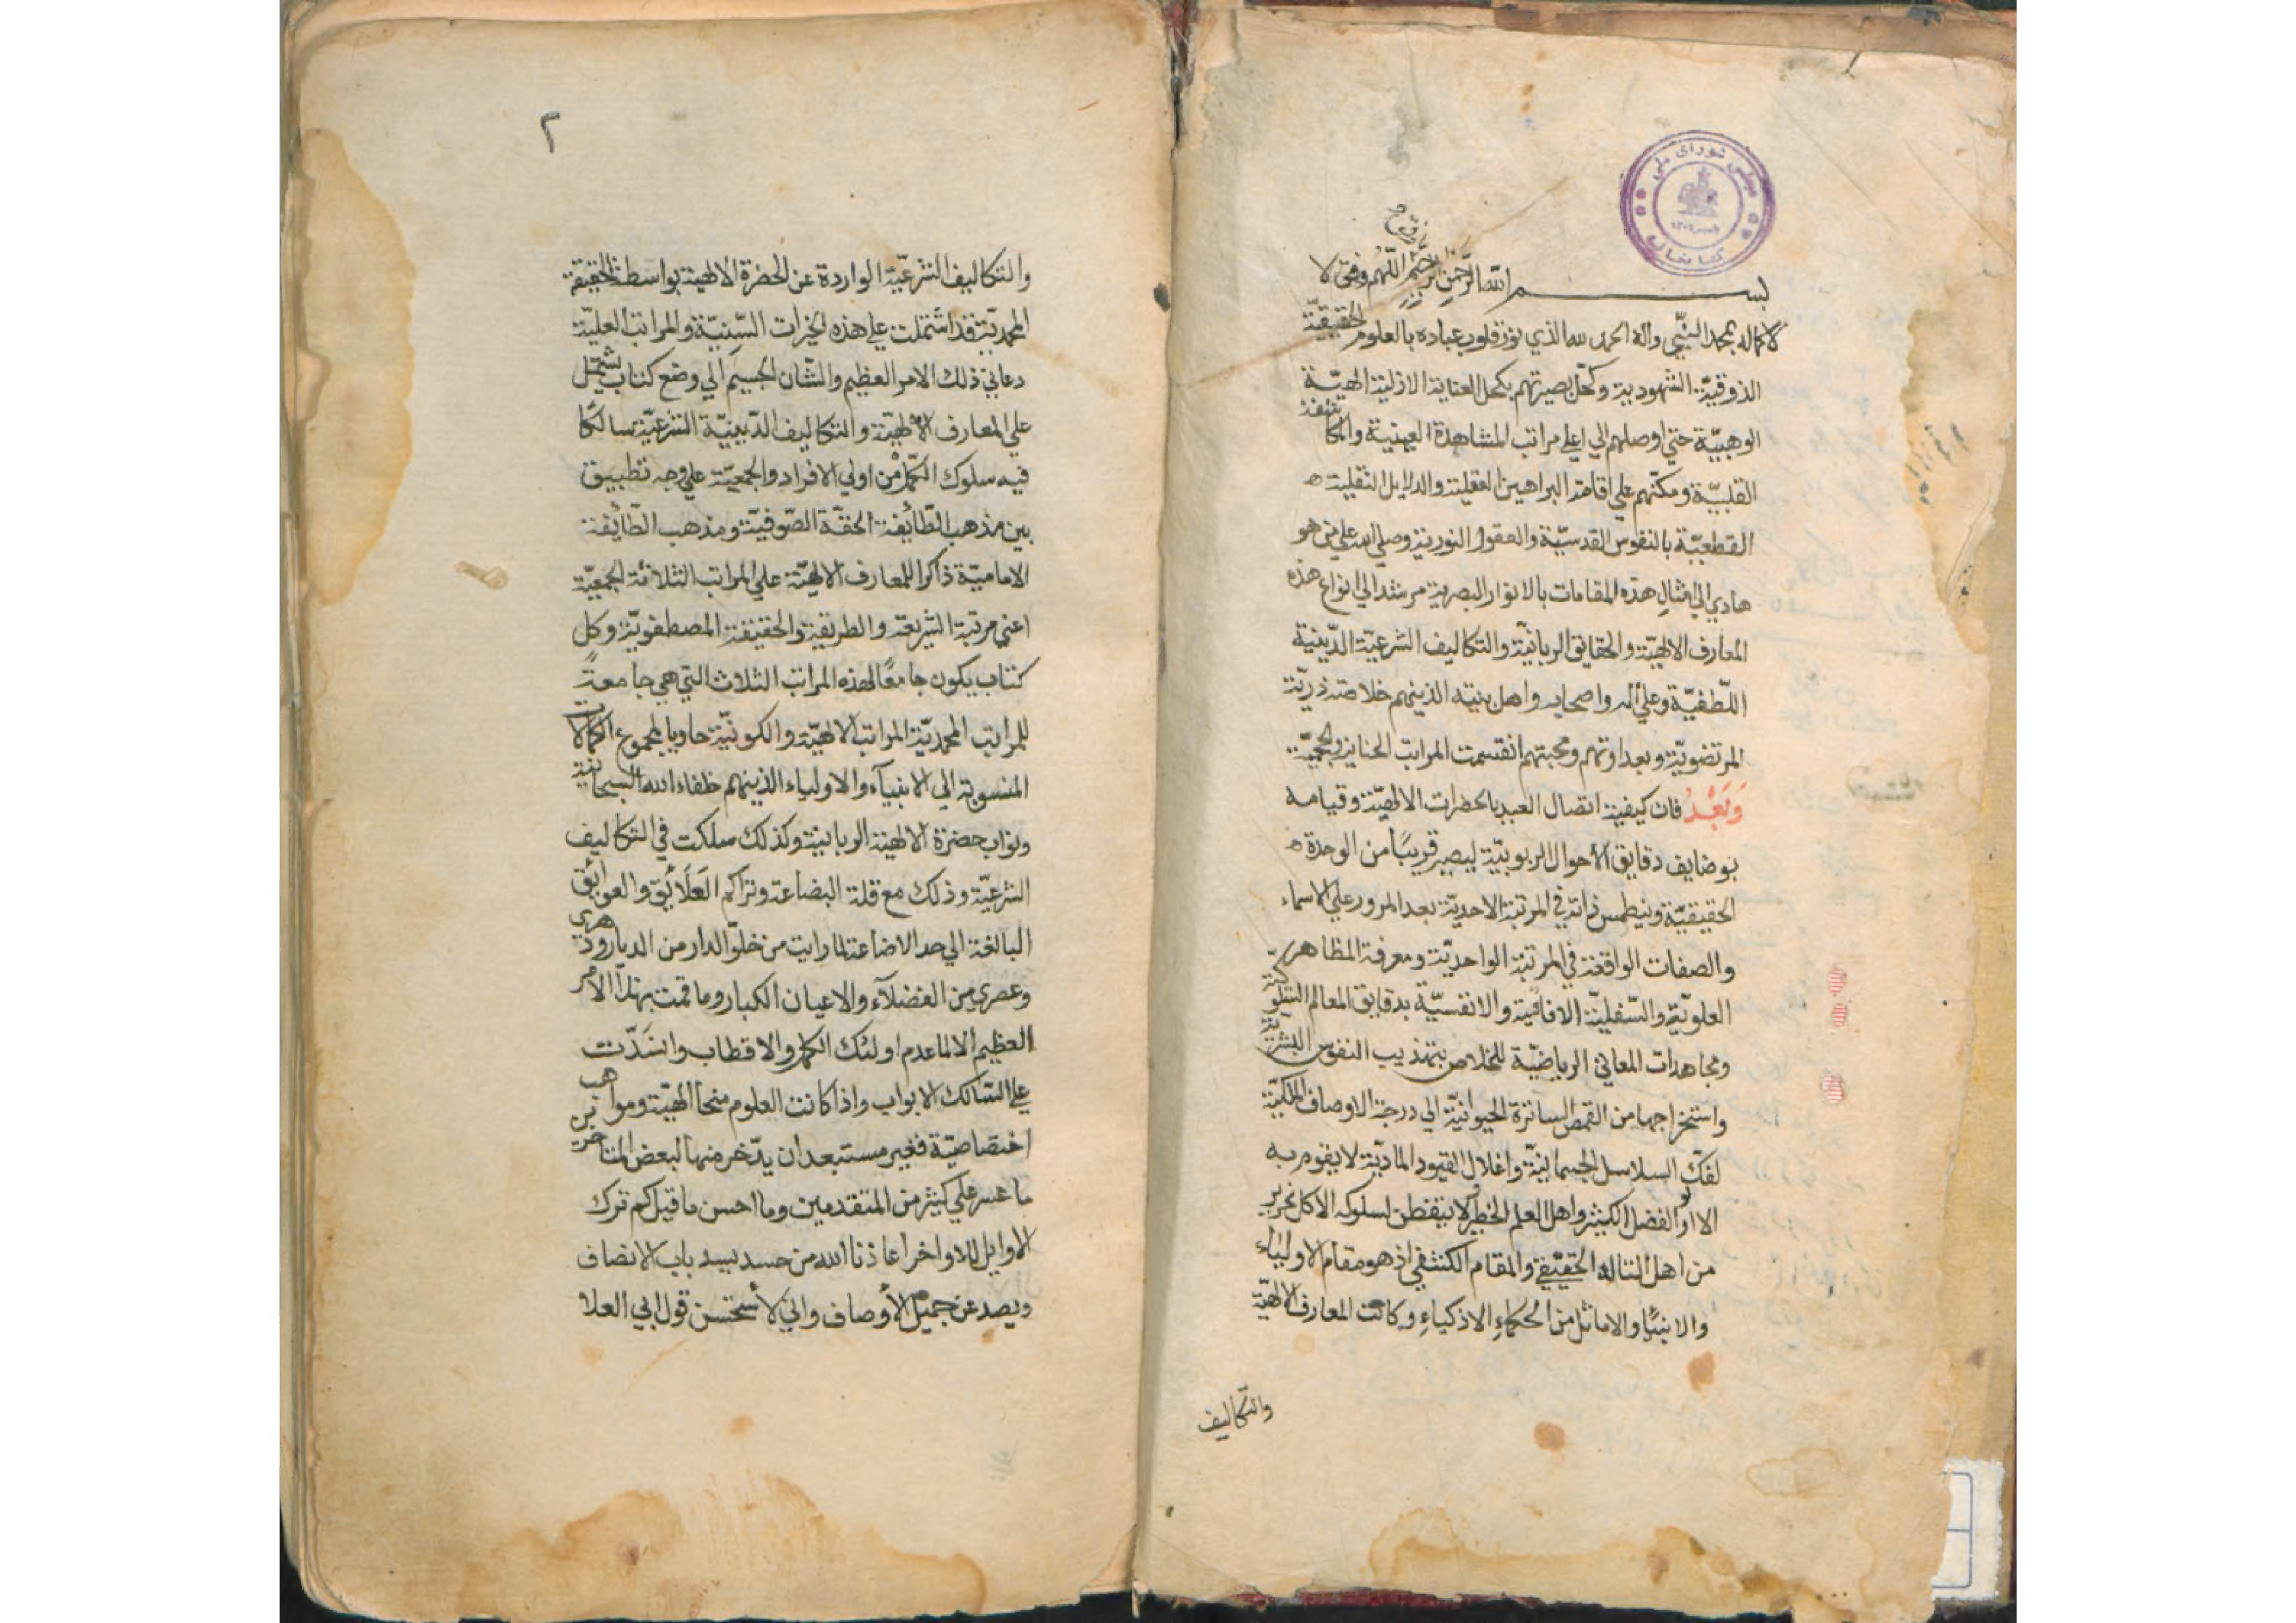 مجلس شورای ملی
کتابخانه
بسم الله الرحمن الرحيم اللهم وفق لا
لاكماله بمحمد النبي واله الحمد لله الذي نور قلوب عباده بالعلوم الحقيقية
الذوقية الشهودية وكحل بصيرتهم بكحل العناية الازلية الهية
الوهبية حتي اوصلهم الي اعلي مراتب المشاهدة العينية والمكاشفة
القلبية ومكنهم علي اقامة البراهين العقلية والدلايل النقلية
القطعية بالنفوس القدسية والعقول النورية وصلي الله علي من هو
هادي الي امثال هذه المقامات بالانوار البصرية مرشد الي انواع هذه
المعارف الالهية والحقايق الربانية والتكاليف الشرعية الدينية
اللطفية وعلي اله واصحابه واهل بيته الذينهم خلاصة ذرية
المرتضوية وبعداوتهم ومحبتهم انقسمت المراتب الجنانية والجحمية
وبعد فان كيفية اتصال العبد بالحضرات الالهية وقيامه
بوضايف دقايق الاحوال الربوبية ليصير قريبا من الوحدة
الحقيقية وينطمس ذاته في المرتبة الاحدية بعد المرور علي الاسماء
والصفات الواقعة في المرتبة الواحدية ومعرفة المظاهر
العلوية والسفلية الافاقية والانفسية بدقايق المعالم السلوكية
ومجاهدات المعاني الرياضية للخلاص بتهذيب النفوس البشرية
واستخراجها من القمص الساترة الحيوانية الي درجة الاوصاف الملكية
لفك السلاسل الجسمانية واغلال القيود المادية لا يقوم به
الا اولو الفضل الكثير واهل العلم الخطير ولا يتفطن لسلوكه الا كل نحرير
من اهل التاله الحقيقي والمقام الكشفي اذ هو مقام الاولياء
والانبياء والاماثل من الحكماء الاذكياء وكانت المعارف الالهية
والتكاليف
٢
والتكاليف الشرعية الواردة عن الحضرة الالهية بواسطة الحقيقة
المحمدية قد اشتملت علي هذه الخيرات السنية والمراتب العلية
دعاني ذلك الامر العظيم والشان الجسيم الي وضع كتاب يشتمل
علي المعارف الالهية والتكاليف الدينية الشرعية سالكا
فيه سلوك الكمل من اولي الافراد والجمعية علي وجه تطبيق
بين مذهب الطائفة الحقة الصوفية ومذهب الطائفة
الامامية ذاكرا للمعارف الالهية علي المراتب الثلاثة الجمعية
اعني مرتبة الشريعة والطريقة والحقيقة المصطفوية وكل
كتاب يكون جامعا لهذه المراتب الثلاث التي هي جامعة
للمراتب المحمدية المراتب الالهية والكونية حاويا لمجموع الكمالات
المنسوبة الي الانبيآء والاولياء الذينهم خلفاء الله السبحانية
ونواب حضرة الالهية الربانية وكذلك سلكت في التكاليف
الشرعية وذلك مع قلة البضاعة وتراكم العلائق والعوايق
البالغة الي حد الاضاعة لما رايت من خلو الدار من الديار ودهري
وعصري من الفضلآء والاعيان الكبار وما قمت بهذا الامر
العظيم الا لما عدم اولئك الكمل والاقطاب وانسدت
علي السالك الابواب واذا كانت العلوم منحا الهية ومواهب
اختصاصية فغير مستبعد ان يدخر منها لبعض المتاخرين
ما عسر علي كثير من المتقدمين وما احسن ما قيل كم ترك
الاوايل للاواخر اعاذنا الله من حسد يسد باب الانصاف
ويصد عن جميل الأوصاف واني لأستحسن قول ابي العلا